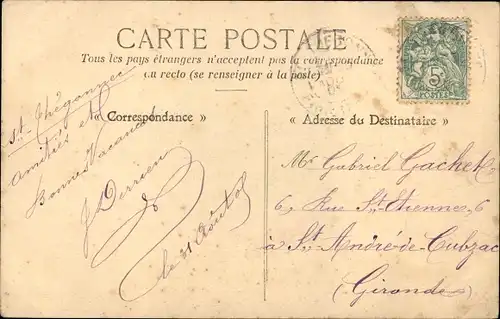 CARTE POSTALE
Tous les pays étrangers n'acceptent pas la correspondance
au recto (se renseigner à la poste)
« Correspondance »
« Adresse du Destinataire »
5c
POSTES
St. Thégonnec
Amitiés et
Bonnes Vacances
J Derrien
le 31 Août 05
Mr Gabriel Gachet
6, Rue St. Etienne, 6
à St. André-de-Cubzac
(Gironde)